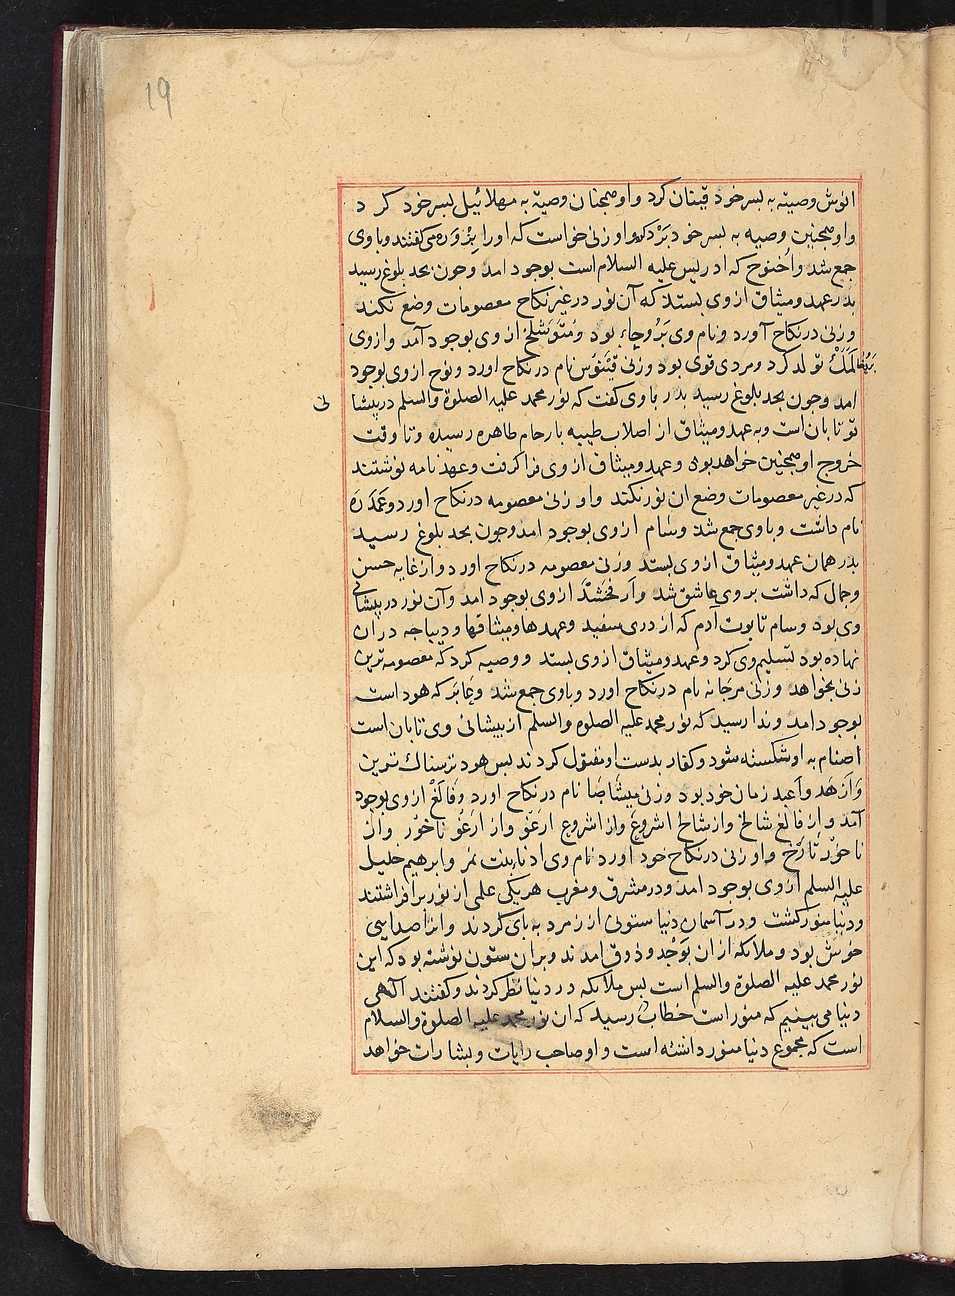 19
انوش وصیته به پسر خود قینان کرد و او همچنان وصیه به مهلائیل پسر خود کر د
و او همچنین وصیه به پسر خود یَرْد کرد و او زنی خواست که او را بِزْوَره می گفتند و با وی
جمع شد و اخنوح که ادریس علیه السلام است بوجود امد و چون بحد بلوغ رسید
پدر عهد و میثاق از وی بستد که آن نور در غیر نکاح معصومات وضع نکند
و زنی در نکاح آورد و نام وی بَرُوحاء بود و مُتَوشلخ از وی بوجود آمد و از وی
لَمَکْ تولد کرد و مردی قوی بود و زنی قَیْنَوَس نام در نکاح اورد و نوح از وی بوجود
امد و چون بحد بلوغ رسید پدر با وی گفت که نور محمد علیه الصلوة والسلم در پیشا
نی
تو تابان است و به عهد و میثاق از اصلاب طیبه بارحام طاهره رسیده و تا وقت
خروج او همچنین خواهد بود و عهد و میثاق از وی فرا گرفت و عهد نامه نوشتند
که در غیر معصومات وضع ان نور نکند و او زنی معصومه در نکاح اورد و عَمْدَرَه
نام داشت و با وی جمع شد و سام از وی بوجود امد و چون بحد بلوغ رسید
پدر همان عهد و میثاق از وی بستد و زنی معصومه در نکاح اورد و از غایه حسن
و جمال که داشت بر وی عاشق شد و اَرفَخْشَدْ از وی بوجود امد و آن نور در پیشانی
وی بود و سام تابوت آدم که از دری سفید و عهدها و میثاقها و دیباجه در ان
نهاده بود تسلیم وی کرد و عهد و میثاق از وی بستد و وصیه کرد که معصومه ترین
زنی بخواهد و زنی مرجانه نام در نکاح اورد و با وی جمع شد و عَابَر که هود است
بوجود امد و ندا رسید که نور محمد علیه الصلوه والسلم از پیشانی وی تابان است
اصنام به او شکسته شود و کفار بدست او مقتول کردند پس هود ترسناک ترین
وَاَزهَد و اَعبد زمان خود بود و زنی میشاصَا نام در نکاح اورد و فَالَغْ از وی بوجود
آمد و از فالغ شالخ و از شالخ اشروغ و از اشروع ارغو و از ارغو ناخوُر و از
ناخور تارَخ و او زنی در نکاح خود اورد نام وی ادنا بنت نمر و ابرهیم خلیل
علیه السلم از وی بوجود امد و در مشرق و مغرب هر یکی علمی از نور برافراشتند
و دنیا منور کشت و در آسمان دنیا ستونی از زمرد به پای کردند و از آن صدا سی
خوش بود و ملائکه از ان بَوَجْد و ذوق امدند و بران ستون نوشته بود که این
نور محمد علیه الصلوة والسلم است پس ملائکه در دنیا نظر کردند و گفتند آلهی
دنیا می بینیم که منور است خطاب رسید که ان نور محمد علیه الصلوة والسلام
است که مجموع دنیا منور داشته است و او صاحب رایات و بشارات خواهد